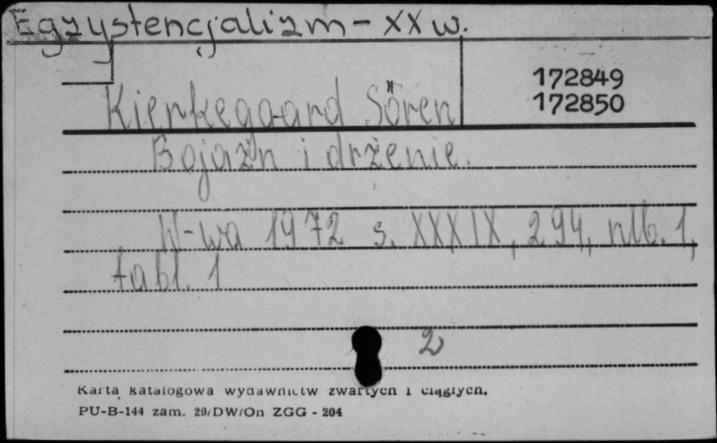 Egzystencjalizm - XX w.
172849
Kierkegaard Sören 172850
Bojaźn i drżenie.
W-wa 1972 s. XXXIX, 294, nlb. 1,
tabl. 1
2
Karta katalogowa wydawnictw zwartych i ciągłych.
PU-B-144 zam. 29/DW/On ZGG - 204